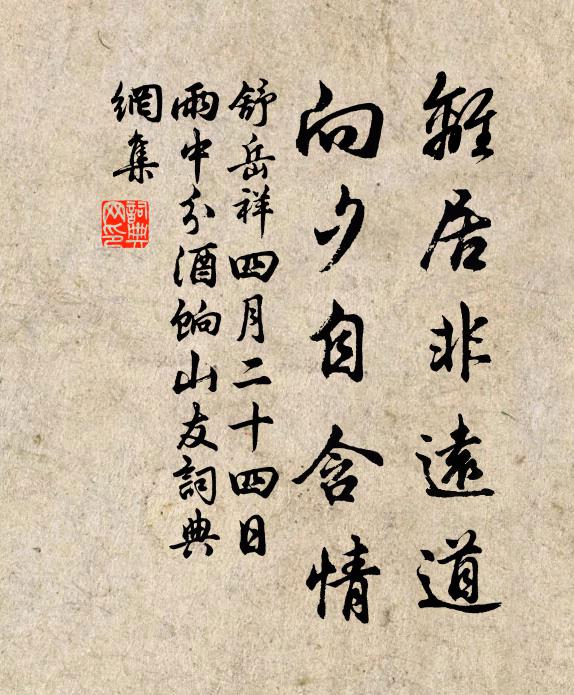 離居非遠道
向夕自含情
舒岳祥四月二十四日
雨中分酒餉山友詞典
網集
詞典
网印